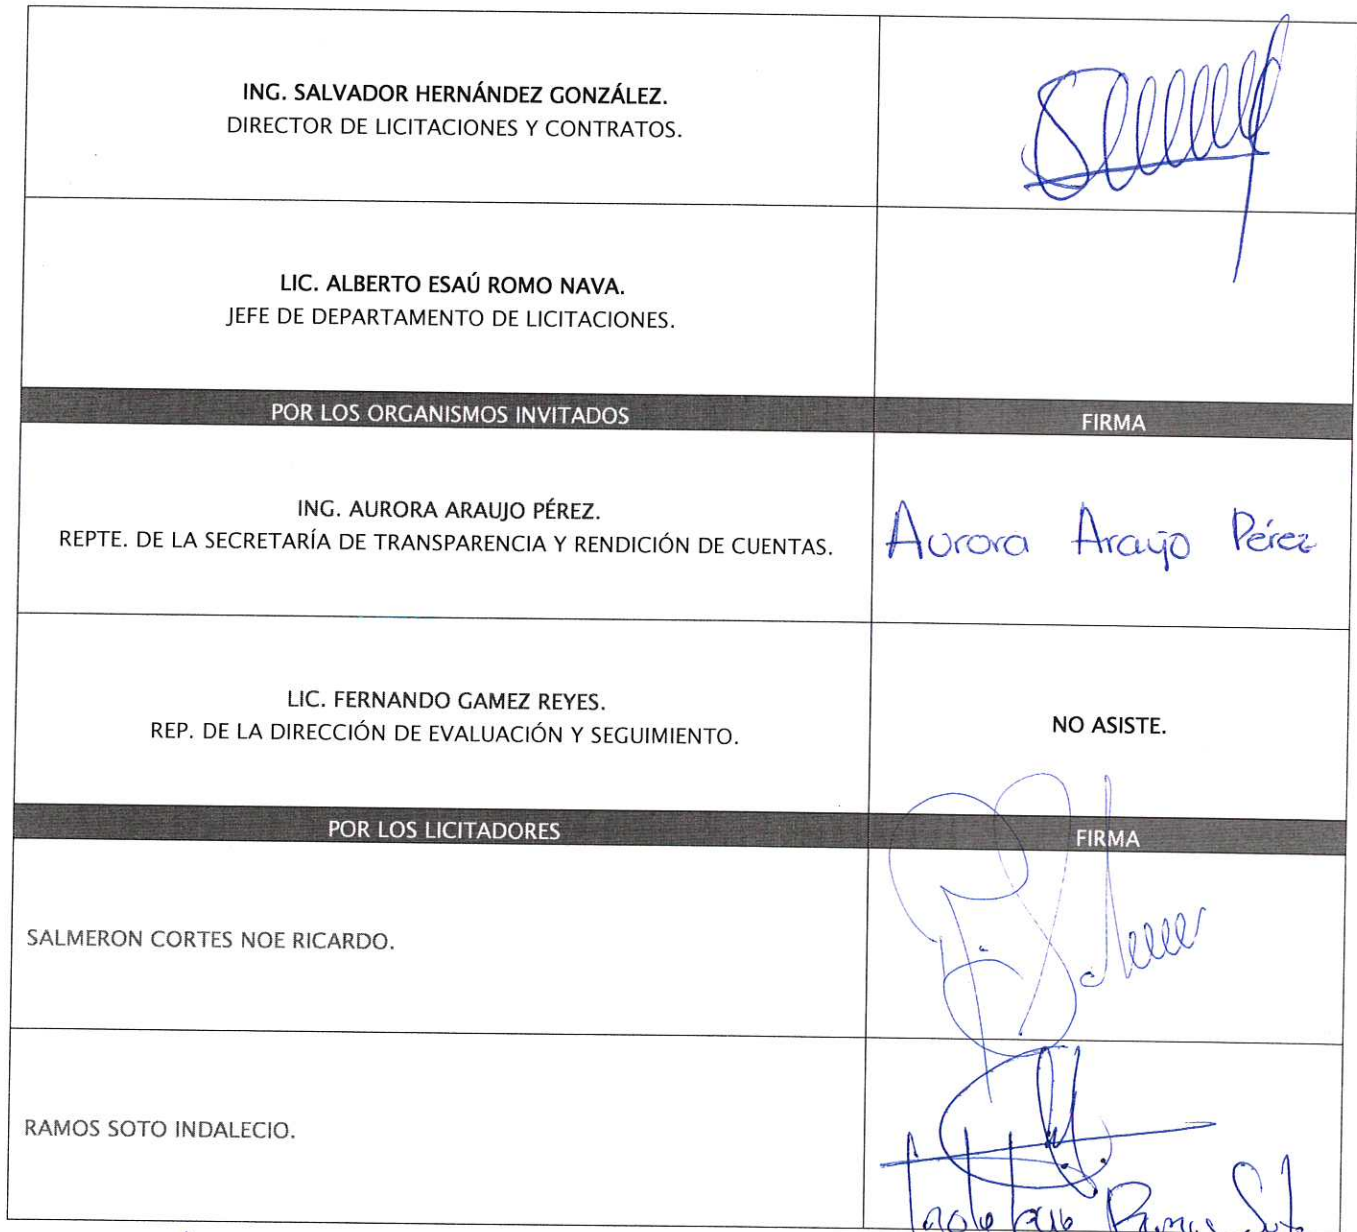 ING. SALVADOR HERNÁNDEZ GONZÁLEZ.
DIRECTOR DE LICITACIONES Y CONTRATOS.
LIC. ALBERTO ESAÚ ROMO NAVA.
JEFE DE DEPARTAMENTO DE LICITACIONES.
POR LOS ORGANISMOS INVITADOS FIRMA
ING. AURORA ARAUJO PÉREZ.
REPTE. DE LA SECRETARÍA DE TRANSPARENCIA Y RENDICIÓN DE CUENTAS.
Aurora Araujo Pérez
LIC. FERNANDO GAMEZ REYES.
REP. DE LA DIRECCIÓN DE EVALUACIÓN Y SEGUIMIENTO.
NO ASISTE.
POR LOS LICITADORES FIRMA
SALMERON CORTES NOE RICARDO.
RAMOS SOTO INDALECIO.
Ramos Soto